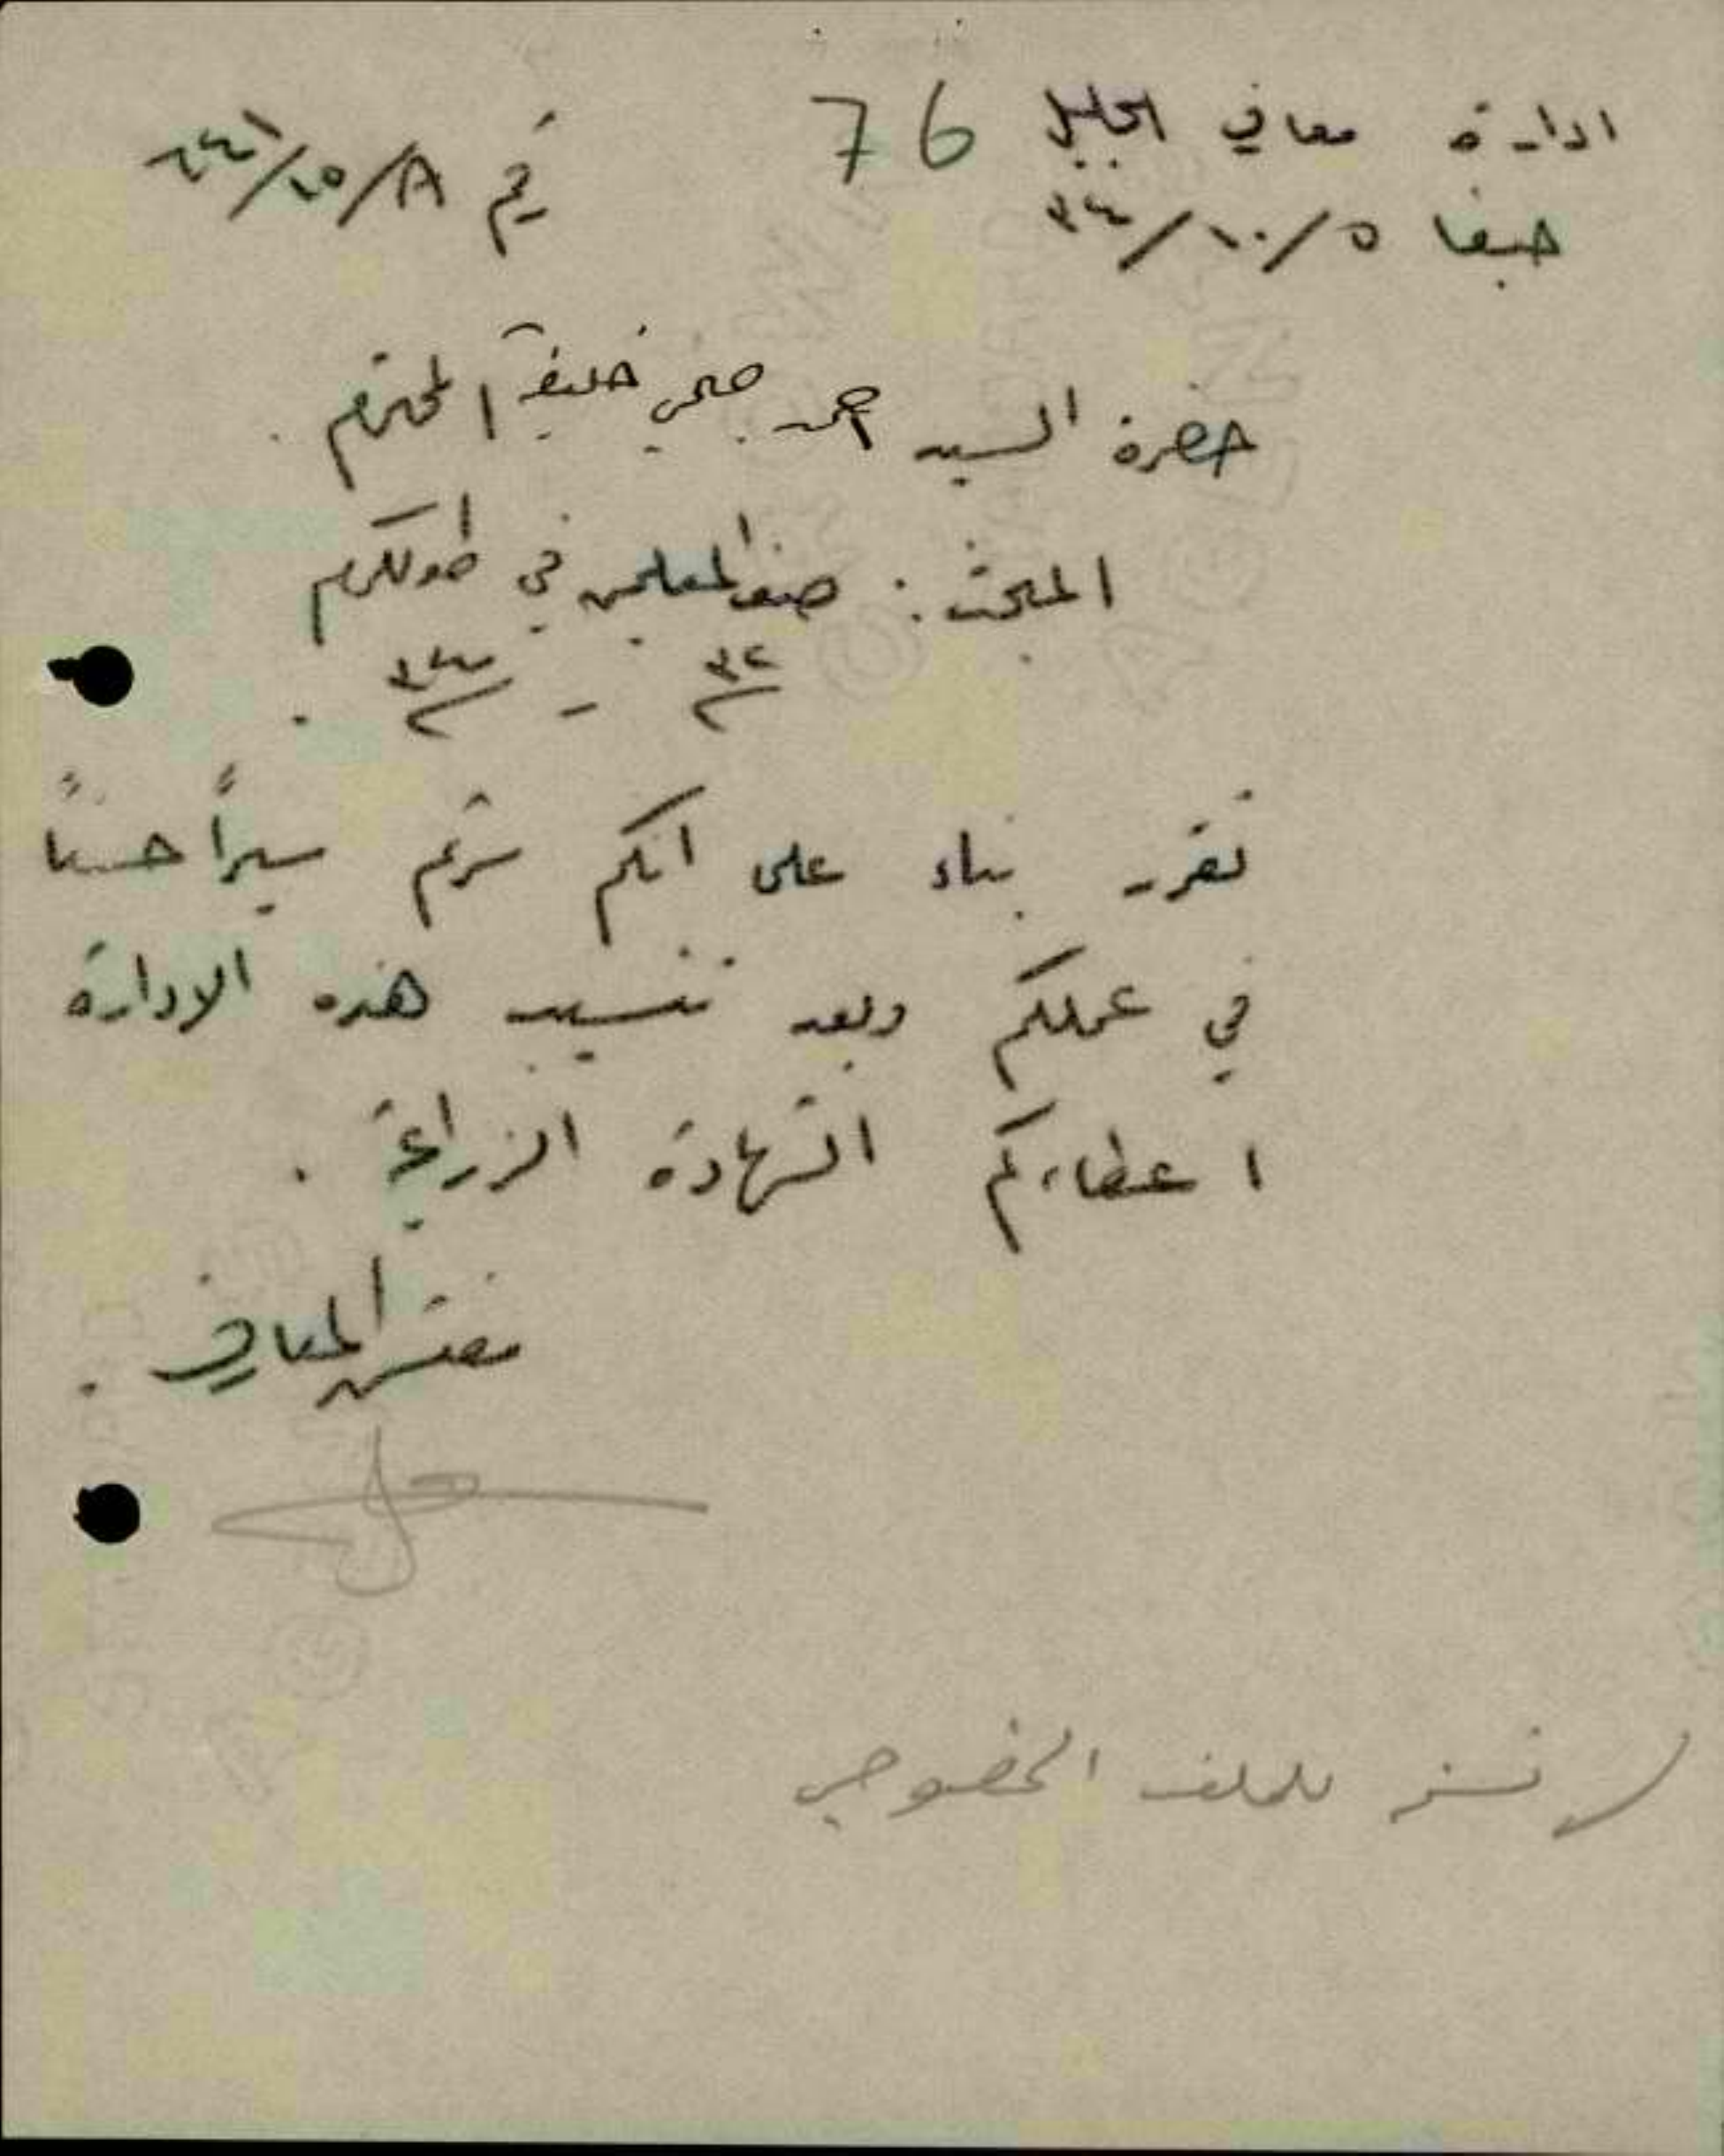 ادارة معارف الجليل 76
حيفا ٥/١٠/٣٤
رقم ٨/١٥/
حضرة السيد احمد صبحي خليفة المحترم .
المبحث : صف المعلمين في طولكرم
٣٣ - ٣٤ .
تقرر بناء على انكم سرتم سيراً حسناً
في عملكم وبعد تنسيب هذه الادارة
اعطاءكم الشهادة الزراعية .
مفتش المعارف .
نسخة للملف الخصوصي